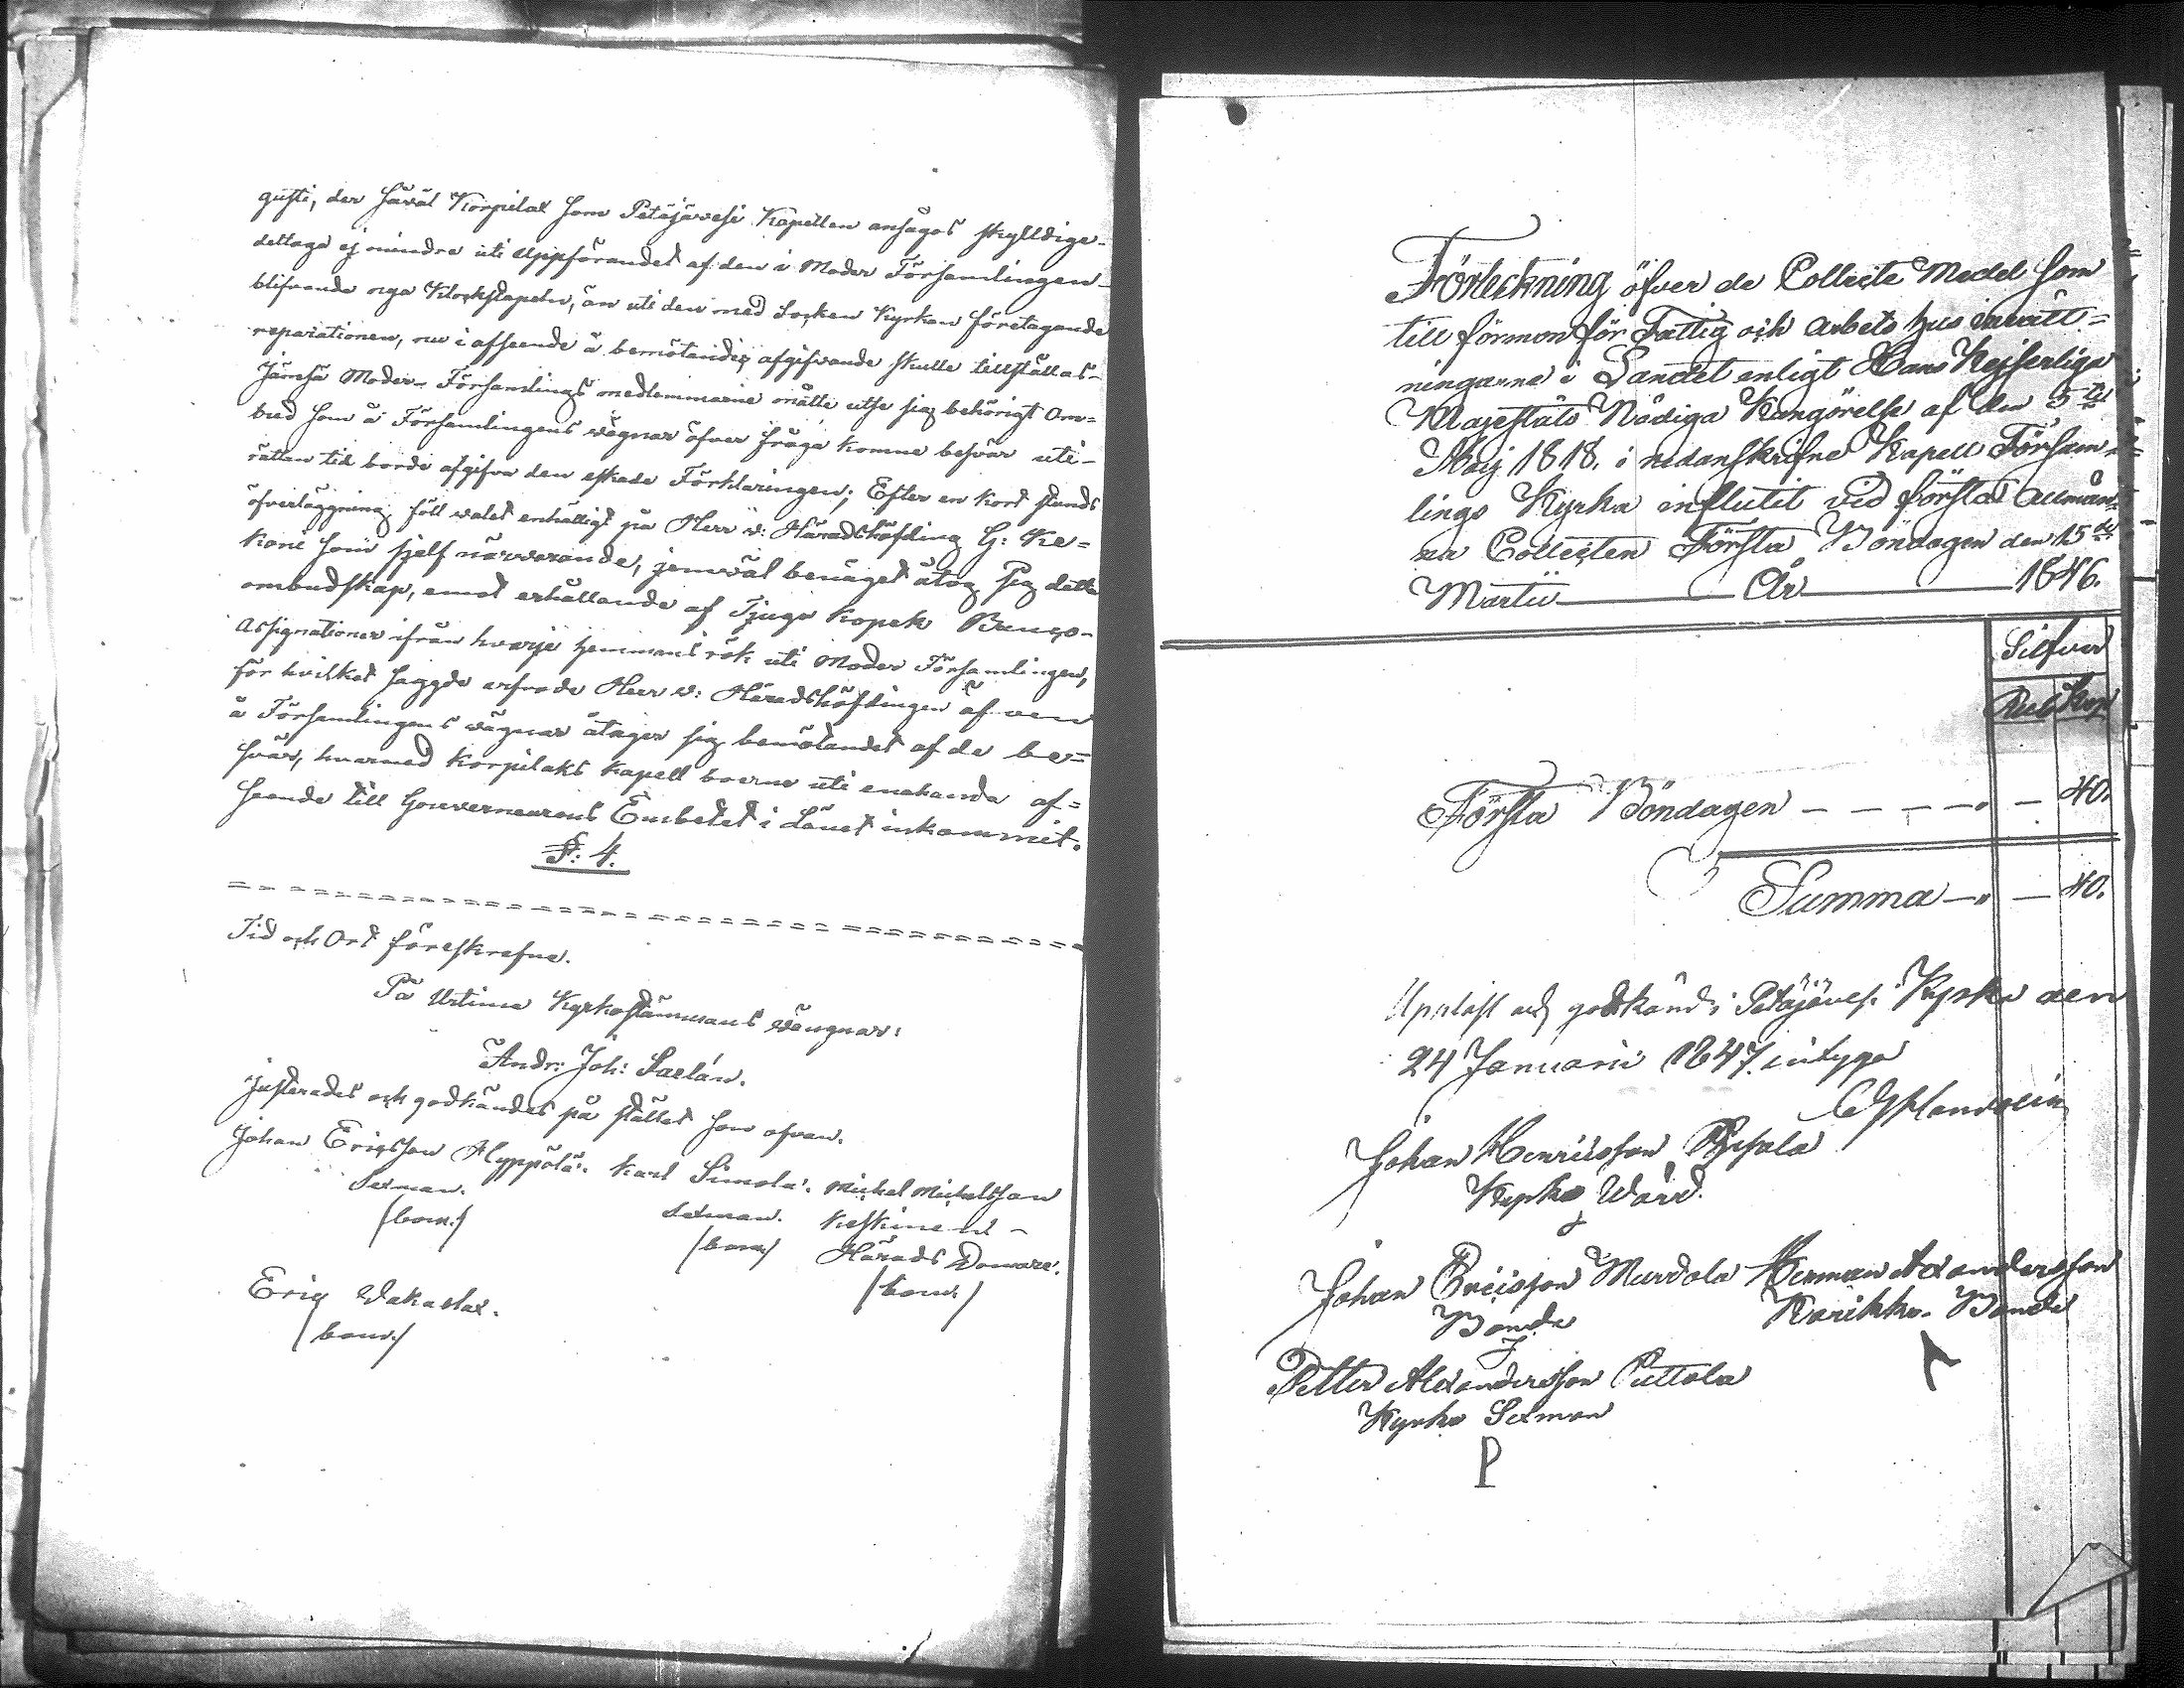 gusti, der såväl Korpilax som Petäjävesi Kapellen ansågos skylldige
deltaga ej mindre uti uppförandet af den i Moder Församlingen
blifvande nya Klockstapeln, än uti den med Socken Kyrkan företagande
reparationen, nu i afseende å bemötandes afgifvande skulle tillställas
Jämsä Moder-Församlings medlemmarne måtte utse sig behörigt Om=
bud som å Församlingens wägnar öfver fråga komne besvär uti
rättan tid borde afgifva den eskade Förklaringen; Efter en kort stunds
öfverläggning föll valet enhälligt på Herr v: Häradshöfding G: Ke=
koni som sjelf närvarande, jemväl benäget åtog sig detta
ombudskap, emot erhållande af Tjugo kopek Banco-
Assignationer ifrån hvarje hemmans rök uti Moder Församlingen,
för hvilket sagde arfvode Herr v: Häradshöfdingen äfven
å Församlingens wägnar åtager sig bemötandet af de be=
svär, hvarmed Korpilaks Kapell boerne uti enahanda af=
seende till Gouverneurens Embetet i Länet inkommit.
§: 4.
Tid och Ort föreskrefne.
På Urtima Kyrkostämmans wängnar:
Andr: Joh:
Justerades och godkändes på stället som ofvan.
Johan Ericsson Hyppölä. Karl Simola. Mickel Mickelsson
Sexman. Sexman. Keskinen
/bom./ /bom./ Härads Domare.
/bom./
Eric Wakaslax.
/bom./
Förteckning öfver de Collecte Medel som
till förmon för Fattig och Arbets hus inrätt=
ningarne i Landet enligt Hans Kejserliga
Majestäts Nådiga Kungörelse af den 5te
Maij 1818. i nedanskrifne Kapell Försam=
lings Kyrka influtit vid första Allmän=
na Collecten Första Böndagen den 15de
Martii År 1846.
Silfver
Rub Kop
Första Böndagen - - - - " - 40.
Summa - " - 40.
Uppläst och godkänd i Petäjävesi Kyrka den
24 Januarii 1847. intyga
Johan Henricsson
Kyrko Wärd.
Johan Ericsson Murdola Herman Alexandersson
Bonde Karikko. Bonde
J
Petter Alexandersson Puttola
Kyrko Sexman
P